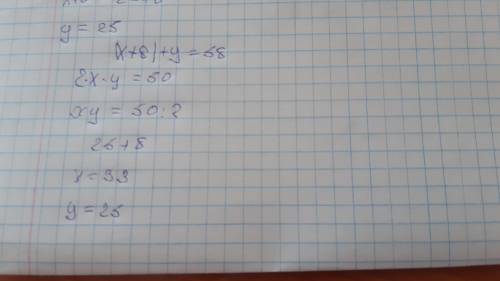 y = 25
(x+8)+y=58
2·x·y=50
xy = 50:2
25+8
x=33
y=25